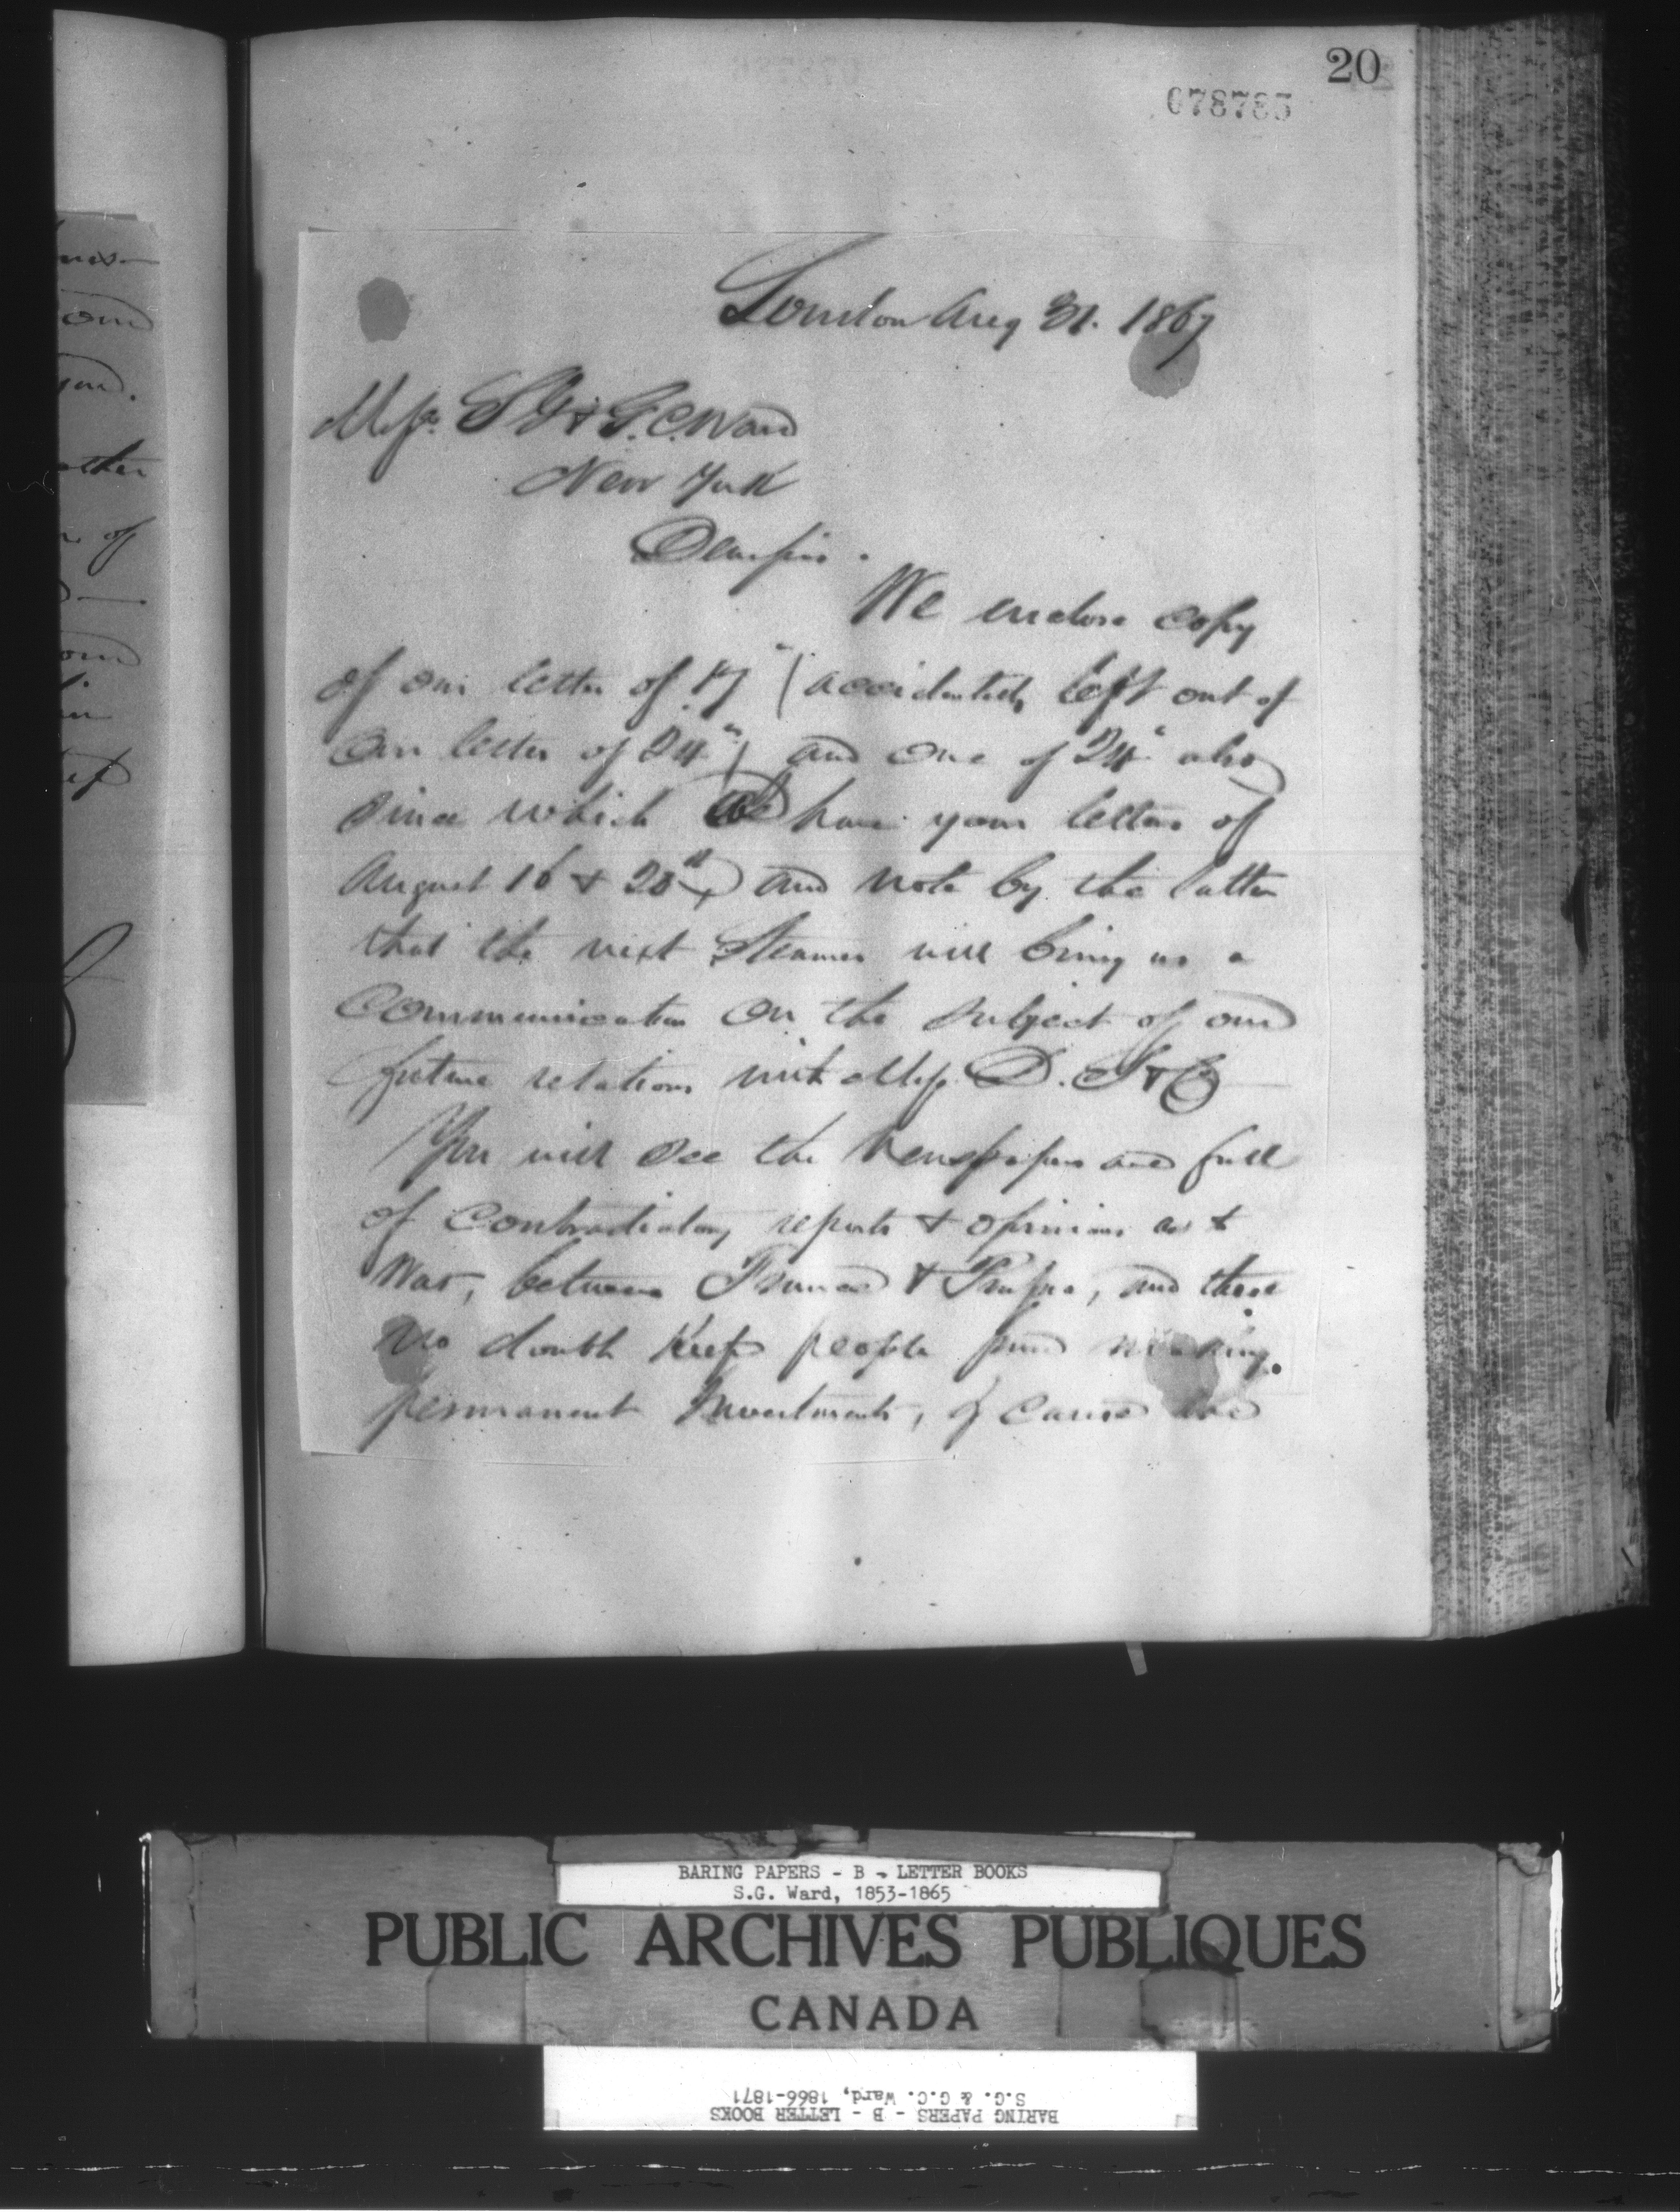 20
078785
London Aug 31. 1867
Messrs S G & G. C. Ward
New York
Dear Sirs.
We enclose copy
of our letter of 17" (accidentally left out of
our letter of 24") and one of 24" also
since which we have your letters of
August 16 & 20th and note by the latter
that the next Steamer will bring us a
Communication on the subject of our
future relations with Messrs D. S & Co
You will see the Newspapers are full
of Contradictory reports & opinions as to
War, between France & Prussia, and these
no doubt keep people from making
permanent Investments, of course
ther
of
BARING PAPERS - B - LETTER BOOKS
S.G. Ward, 1853-1865
PUBLIC ARCHIVES PUBLIQUES
CANADA
BARING PAPERS - B - LETTER BOOKS
S.G. & G.C. Ward, 1866-1871